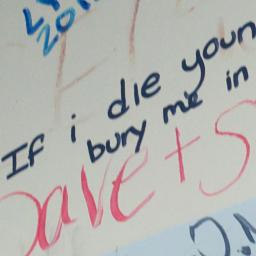 If i die youn
bury me in
Dave + S